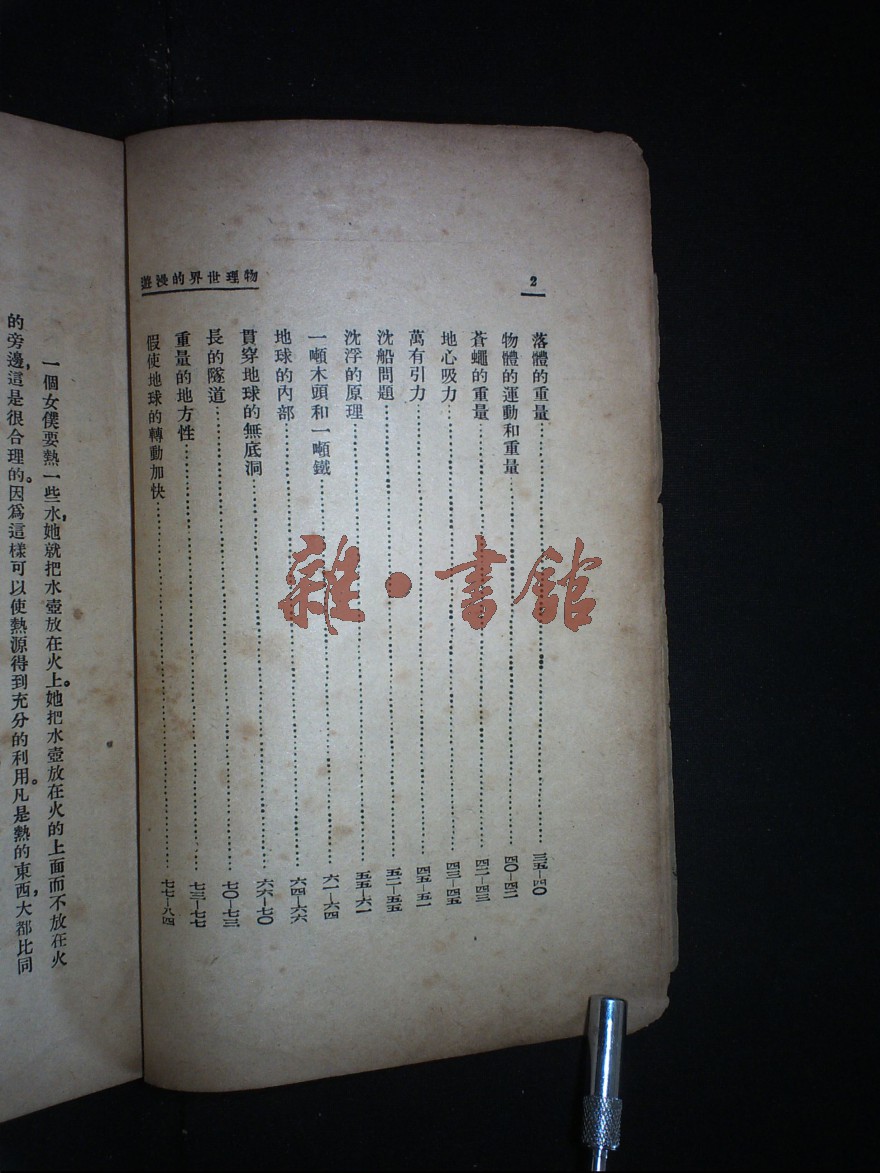 2
物理世界的漫遊
落體的重量……三五—四〇
物體的運動和重量……四〇—四二
蒼蠅的重量……四二—四三
地心吸力……四三—四五
萬有引力……四五—五一
沈船問題……五二—五五
沈浮的原理……五五—六一
一噸木頭和一噸鐵……六一—六四
地球的內部……六四—六六
貫穿地球的無底洞……六六—七〇
長的隧道……七〇—七三
重量的地方性……七三—七七
假使地球的轉動加快……七七—八四
一個女僕要熱一些水,她就把水壺放在火上。她把水壺放在火的上面而不放在火
的旁邊,這是很合理的。因爲這樣可以使熱源得到充分的利用。凡是熱的東西,大都比同
雜·書館